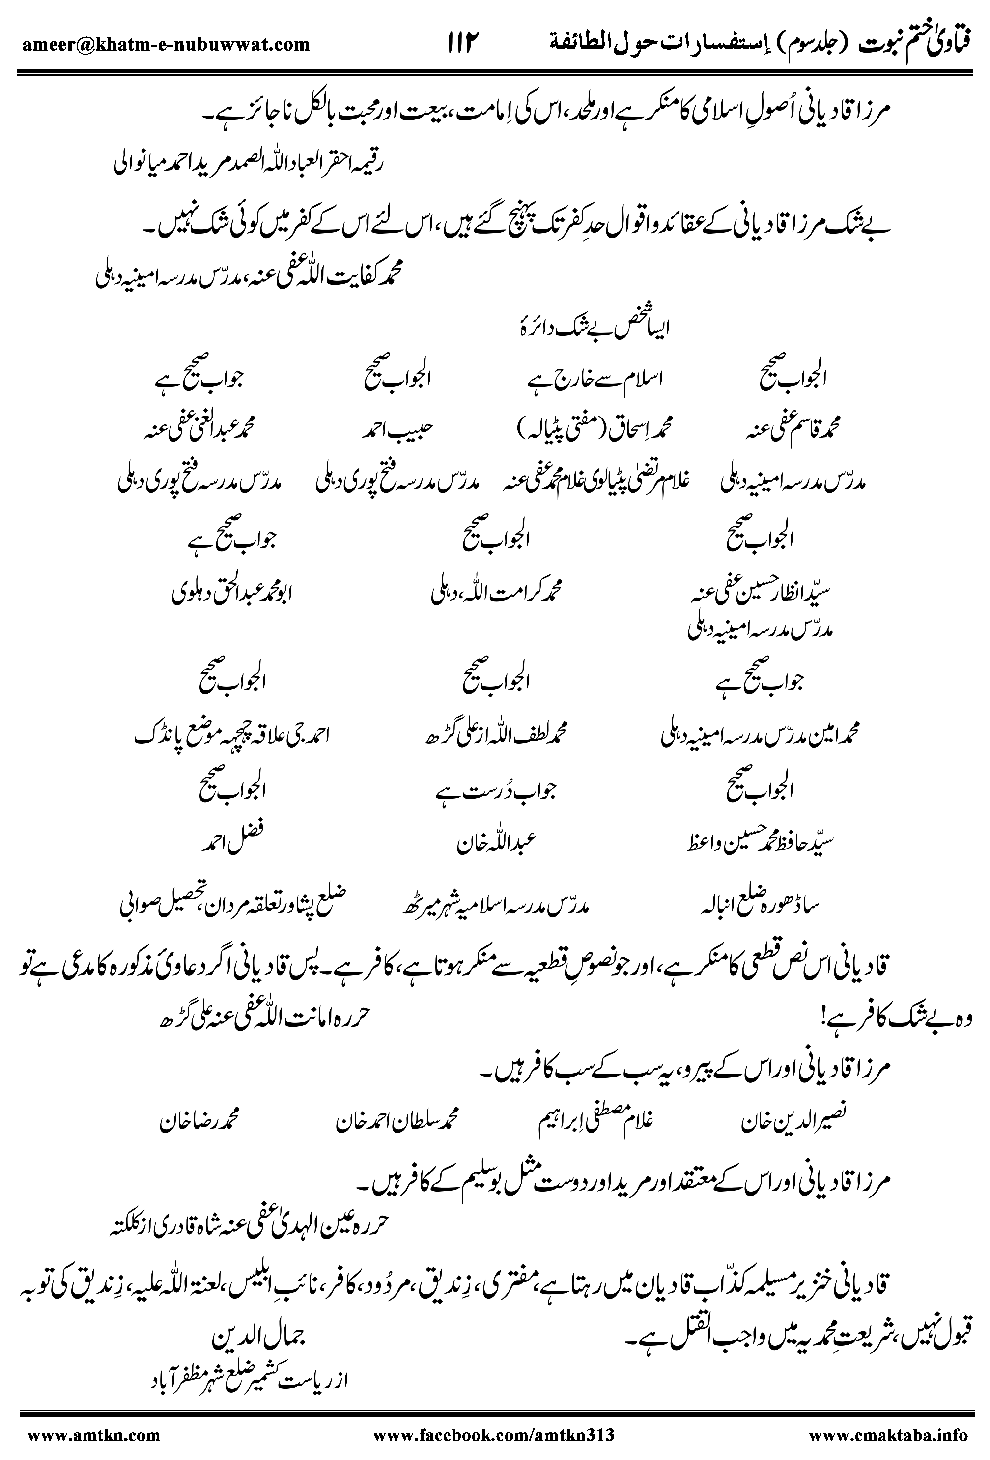 فتاویٰ ختم نبوت (جلد سوم) إستفسارات حول الطائفة ۱۱۲ ameer@khatm-e-nubuwwat.com
مرزا قادیانی اُصولِ اسلامی کا منکر ہے اور ملحد، اس کی اِمامت، بیعت اور محبت بالکل ناجائز ہے۔
رقیمہ احقر العباد اللہ الصمد مرید احمد میانوالی
بے شک مرزا قادیانی کے عقائد و اقوال حدِ کفر تک پہنچ گئے ہیں، اس لئے اس کے کفر میں کوئی شک نہیں۔
محمد کفایت اللہ عفی عنہ، مدرّس مدرسہ امینیہ دہلی
ایسا شخص بے شک دائرۂ
الجواب صحیح اسلام سے خارج ہے الجواب صحیح جواب صحیح ہے
محمد قاسم عفی عنہ محمد اِسحاق (مفتی پٹیالہ) حبیب احمد محمد عبدالغنی عفی عنہ
مدرّس مدرسہ امینیہ دہلی غلام مرتضیٰ پٹیالوی غلام محمد عفی عنہ مدرّس مدرسہ فتح پوری دہلی مدرّس مدرسہ فتح پوری دہلی
الجواب صحیح الجواب صحیح جواب صحیح ہے
سیّد انظار حسین عفی عنہ محمد کرامت اللہ، دہلی ابو محمد عبدالحق دہلوی
مدرّس مدرسہ امینیہ دہلی
جواب صحیح ہے الجواب صحیح الجواب صحیح
محمد امین مدرّس مدرسہ امینیہ دہلی محمد لطف اللہ از علی گڑھ احمد جی علاقہ چھچھہ موضع پانڈک
الجواب صحیح جواب دُرست ہے الجواب صحیح
سیّد حافظ محمد حسین واعظ عبداللہ خان فضل احمد
ساڈھورہ ضلع انبالہ مدرّس مدرسہ اسلامیہ شہر میرٹھ ضلع پشاور تعلقہ مردان، تحصیل صوابی
قادیانی اس نص قطعی کا منکر ہے، اور جو نصوصِ قطعیہ سے منکر ہوتا ہے، کافر ہے۔ پس قادیانی اگر دعاویٔ مذکورہ کا مدعی ہے تو
وہ بے شک کافر ہے! حررہ امانت اللہ عفی عنہ علی گڑھ
مرزا قادیانی اور اس کے پیرو، یہ سب کے سب کافر ہیں۔
نصیر الدین خان غلام مصطفی اِبراہیم محمد سلطان احمد خان محمد رضا خان
مرزا قادیانی اور اس کے معتقد اور مرید اور دوست مثل بوسلیم کے کافر ہیں۔
حررہ عین الہدیٰ عفی عنہ شاہ قادری از کلکتہ
قادیانی خنزیر مسیلمہ کذّاب قادیان میں رہتا ہے، مفتری، زِندیق، مردُود، کافر، نائبِ ابلیس، لعنۃ اللہ علیہ، زِندیق کی توبہ
قبول نہیں، شریعتِ محمدیہ میں واجب القتل ہے۔ جمال الدین
از ریاست کشمیر ضلع شہر مظفر آباد
www.amtkn.com www.facebook.com/amtkn313 www.cmaktaba.info